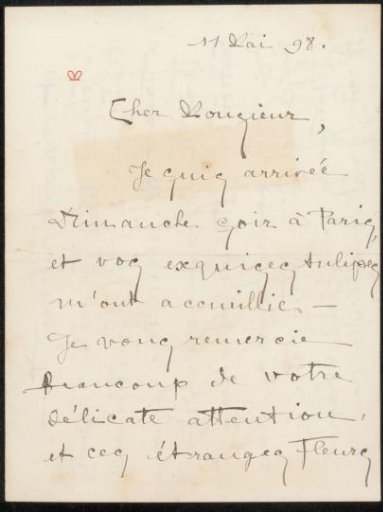 11 Mai 98.
Cher Monsieur,
Je suis arrivée
Dimanche soir à Paris,
et vos exquises tulipes
m'ont accueillie —
Je vous remercie
beaucoup de votre
délicate attention,
et ces étranges fleurs